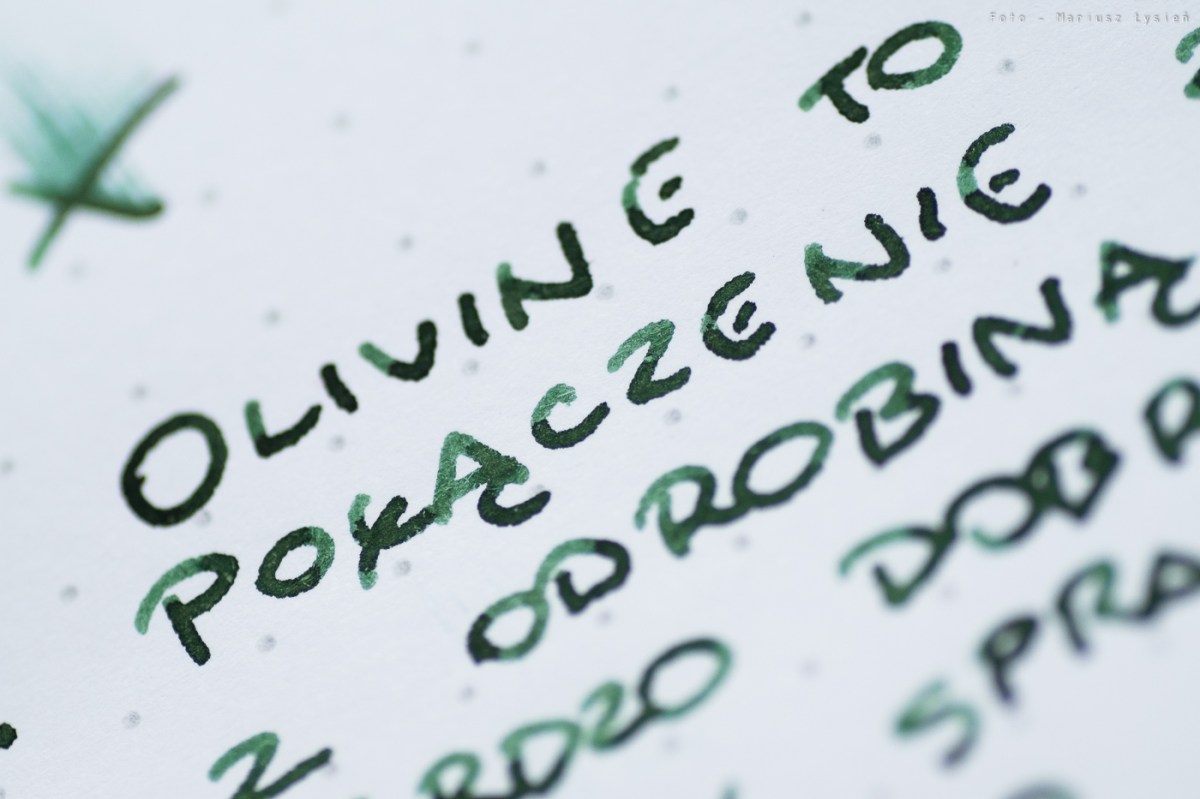 Foto - Mariusz Łysień
OLIVINE TO
POŁĄCZENIE
ODROBINĄ
RDZO DOB
SPRA